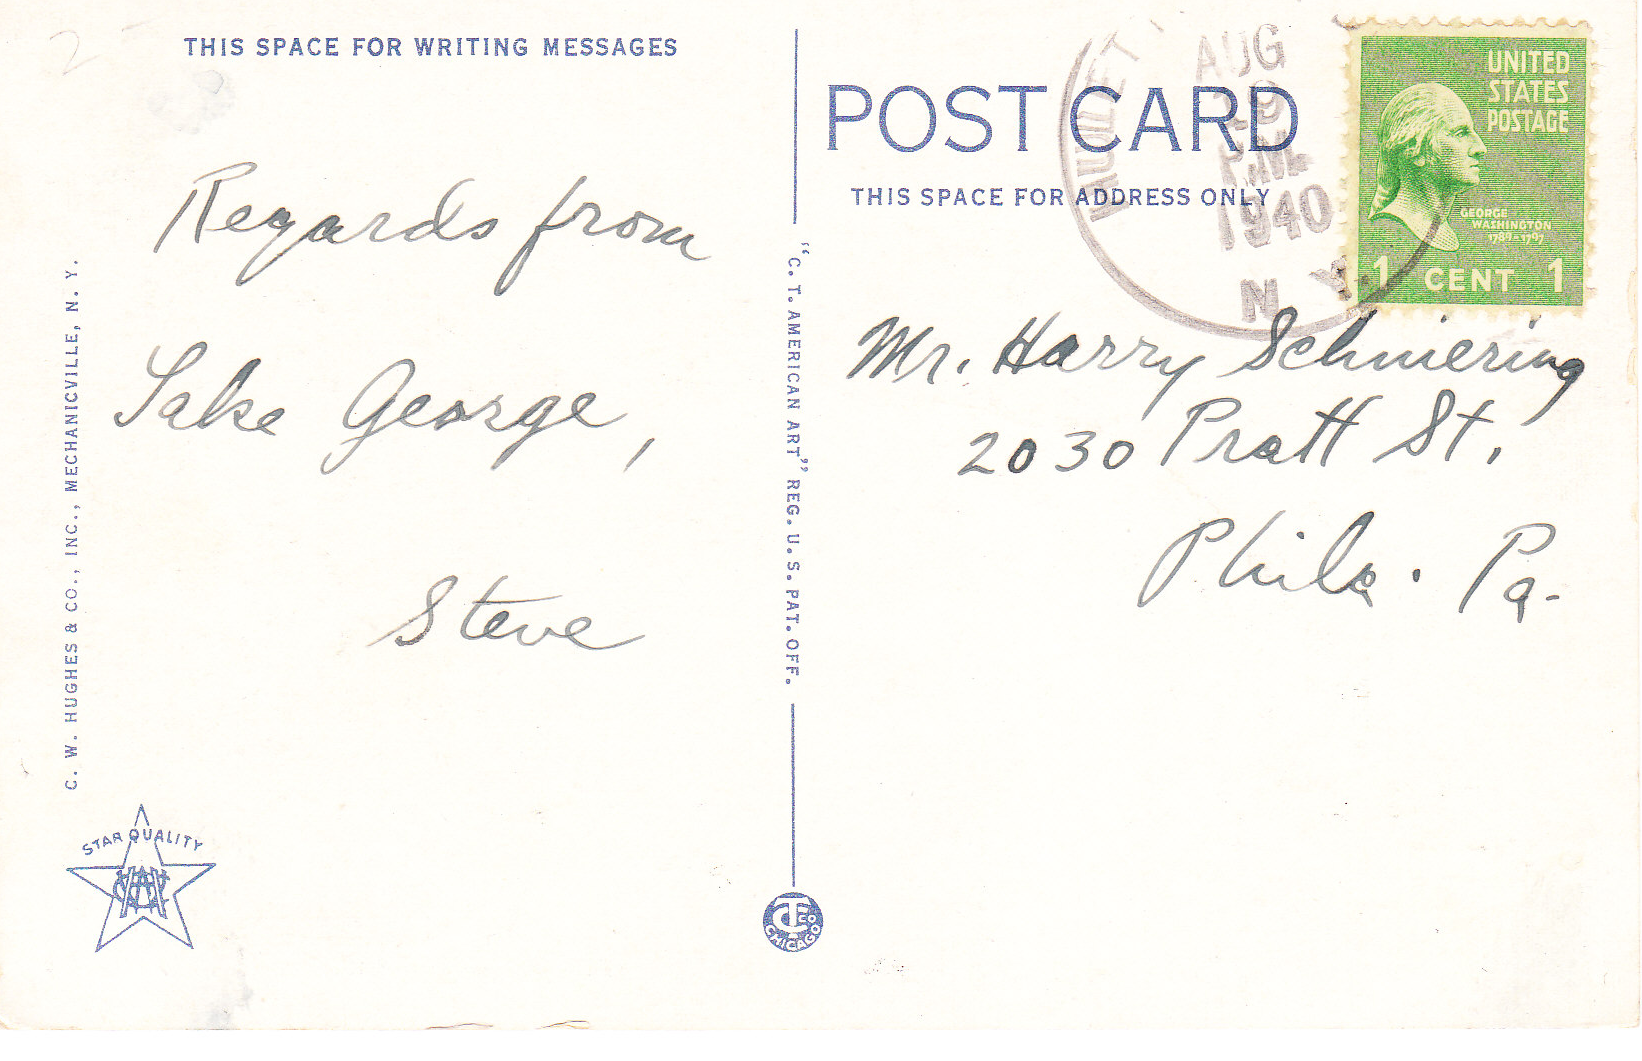 2
THIS SPACE FOR WRITING MESSAGES
Regards from
Lake George,
Steve
C. W. HUGHES & CO., INC., MECHANICVILLE, N. Y.
STAR QUALITY
"C. T. AMERICAN ART" REG. U. S. PAT. OFF.
CT CO
CHICAGO
POST CARD
THIS SPACE FOR ADDRESS ONLY
AUG
P.M.
1940
N. Y.
UNITED
STATES
POSTAGE
GEORGE
WASHINGTON
1789-1797
1 CENT 1
Mr. Harry Schmiering
2030 Pratt St.
Phila. Pa.